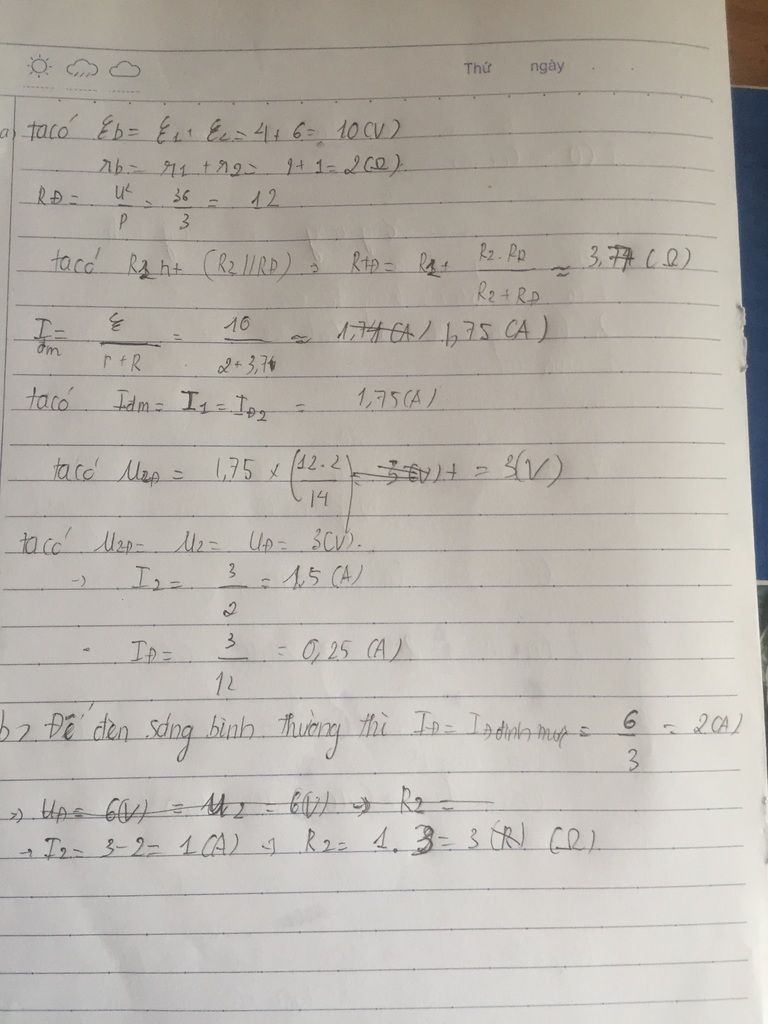 Thứ ngày
a) ta có ξb = ξ1 + ξ2 = 4 + 6 = 10 (V)
rb = r1 + r2 = 1 + 1 = 2 (Ω)
RĐ = U²/P = 36/3 = 12
ta có R1 nt (R2 // RĐ) → RtĐ = R1 + R2.RĐ/R2+RĐ ≈ 3,71 (Ω)
Iđm = ξ/r+R = 10/2+3,71 ≈ 1,74 (A) 1,75 (A)
ta có Iđm = I1 = IĐ2 = 1,75 (A)
ta có U2Đ = 1,75 × (12.2/14) = 3 (V)
ta có U2Đ = U2 = UĐ = 3 (V).
→ I2 = 3/2 = 1,5 (A)
IĐ = 3/12 = 0,25 (A)
b> Để đèn sáng bình thường thì IĐ = IĐ định mức = 6/3 = 2 (A)
→ UĐ = 6 (V) = U2 = 6 (V) → R2 =
→ I2 = 3 - 2 = 1 (A) → R2 = 1. 3 = 3 (Ω)